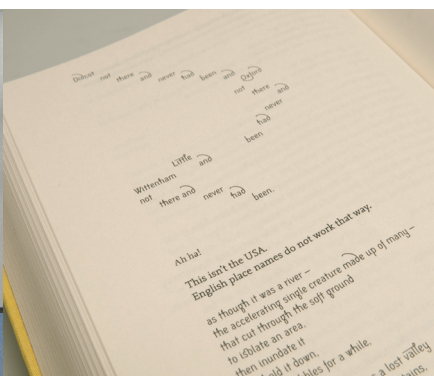 Didcot not there and never had been and Oxford
not there and
never
had
been
Little and
Wittenham
not there and never had been.
Ah ha!
This isn't the USA.
English place names do not work that way.
as though it was a river –
the accelerating single creature made up of many –
that cut through the soft ground
to isolate an area.
then inundate it
old it down.
bles for a while.
a lost valley
lains.